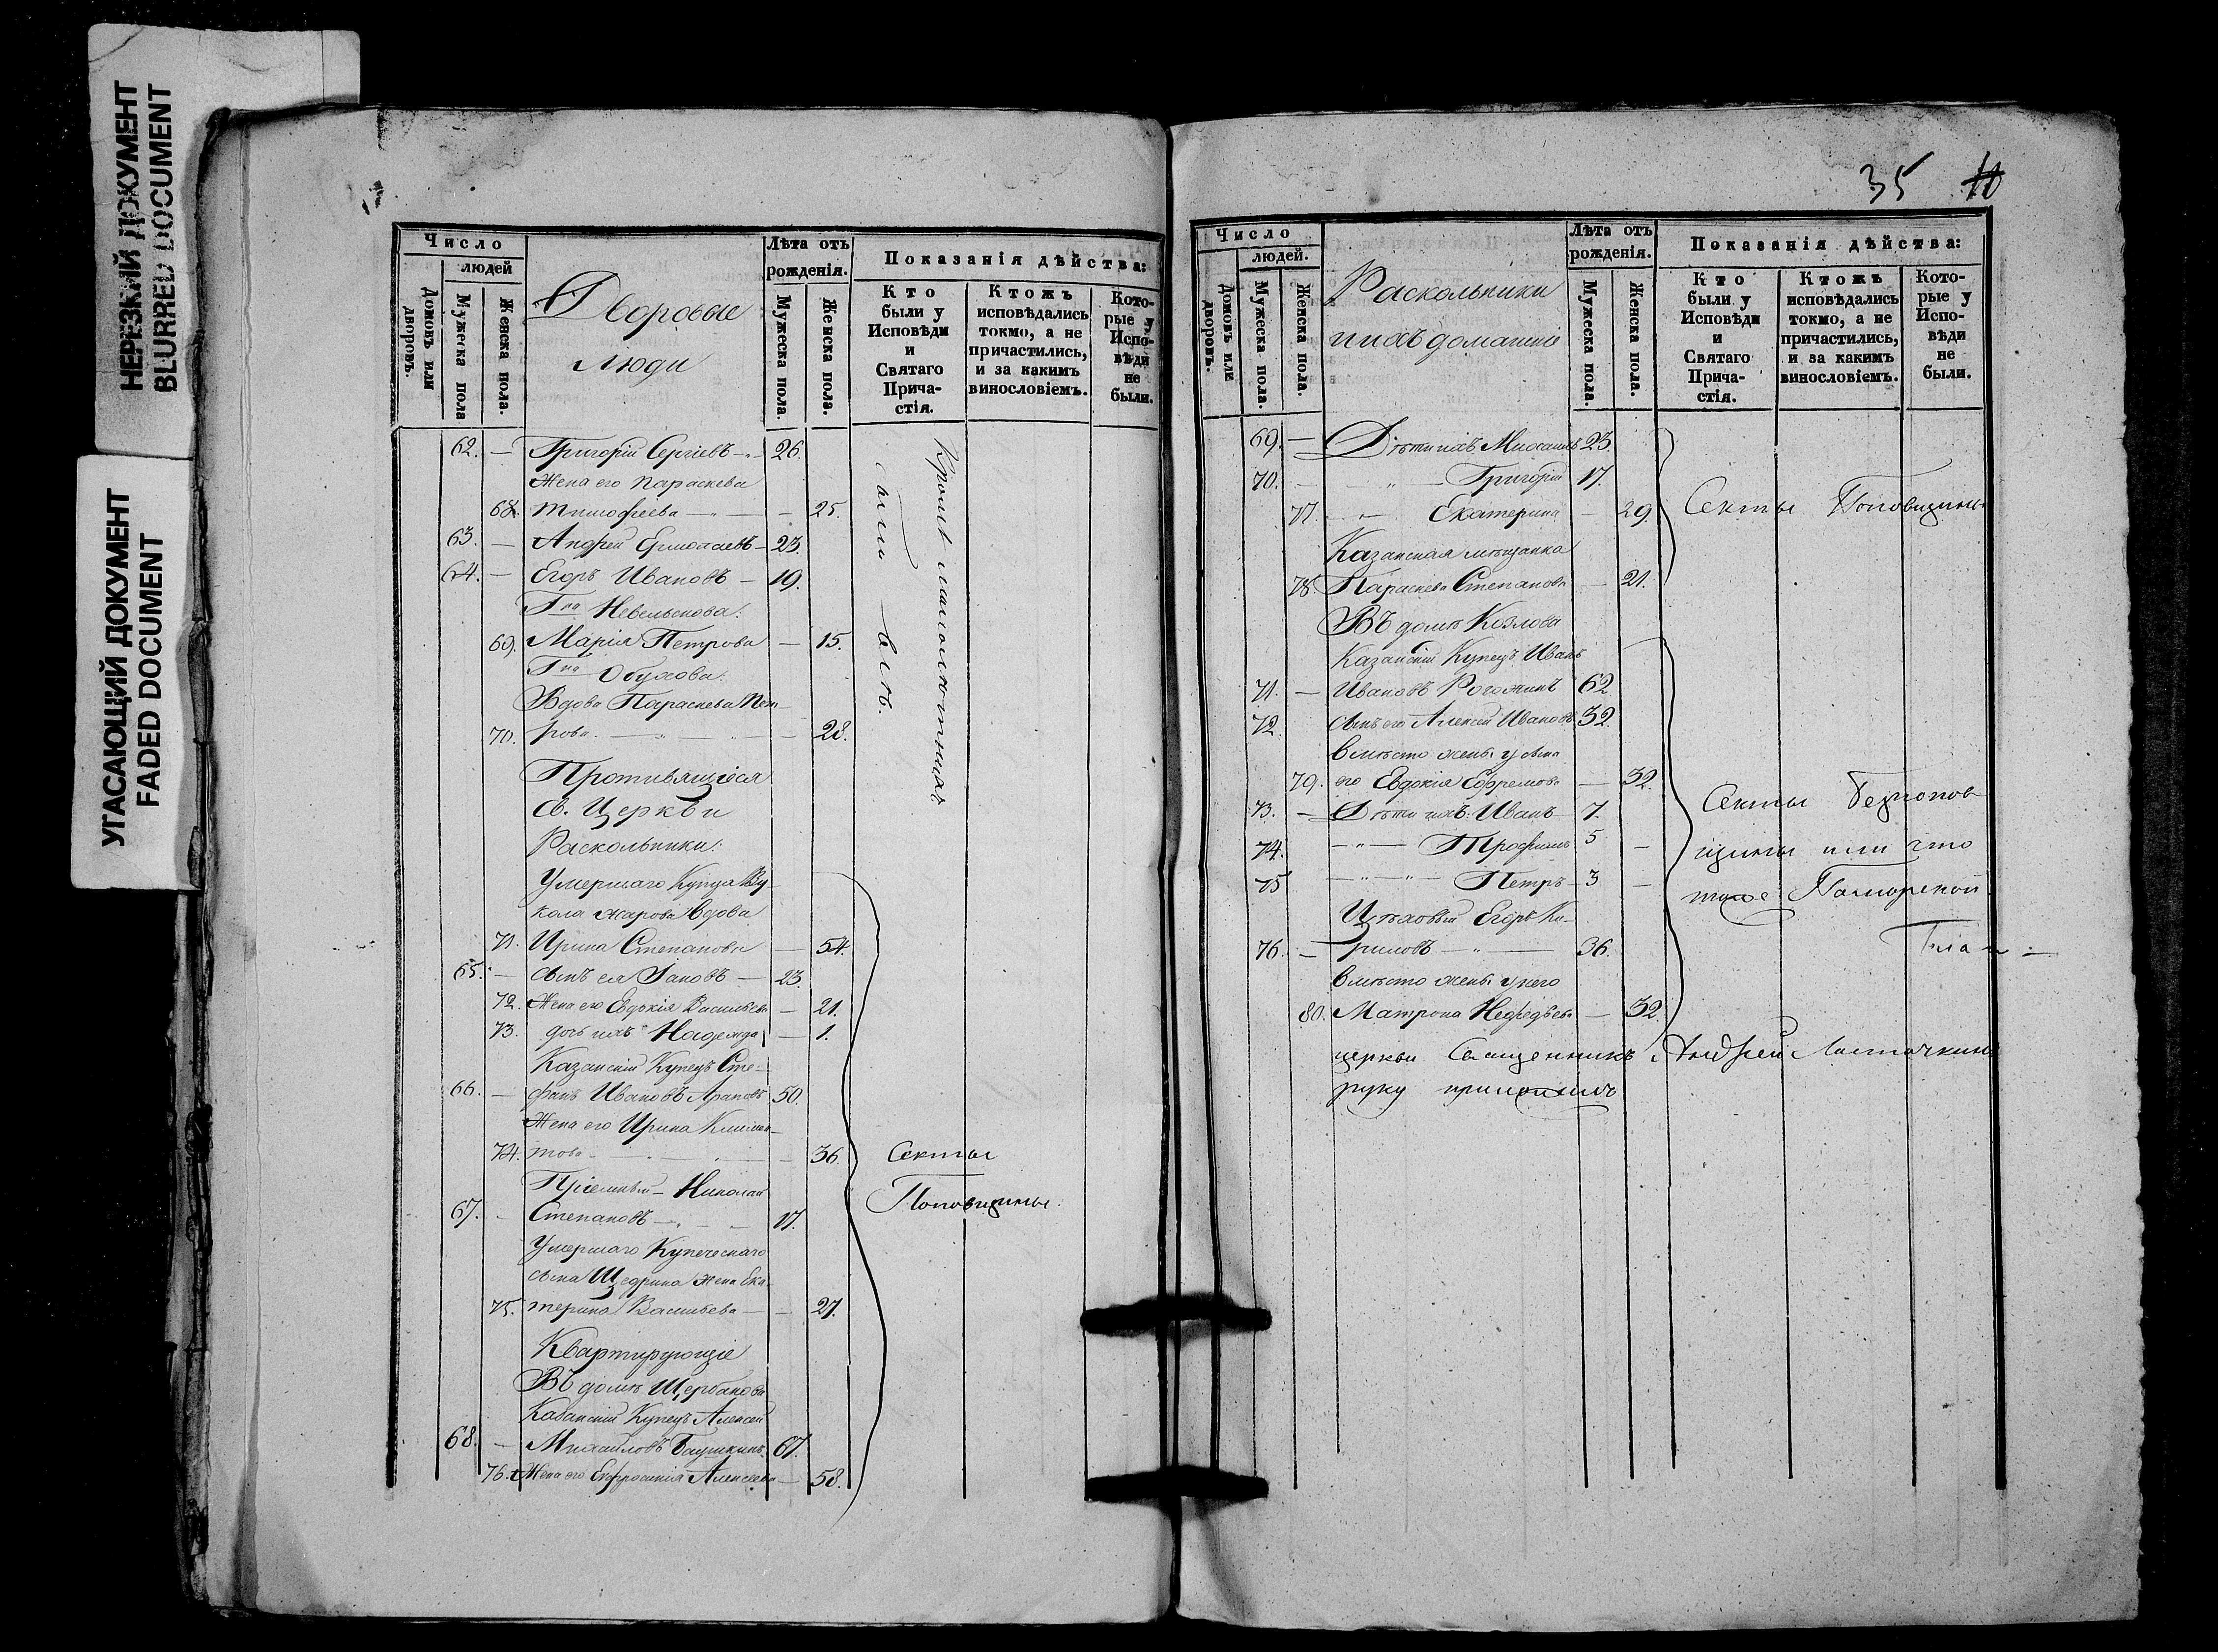 НЕРЕЗКИЙ ДОКУМЕНТ
BLURRED DOCUMENT
УГАСАЮЩИЙ ДОКУМЕНТ
FADED DOCUMENT
Число
людей
Домовъ или дворовъ.
Мужеска пола
Женска пола.
Дворовые
люди
Лѣта отъ
рожденія.
Мужеска пола.
Женска пола.
Показанія дѣйства:
Кто
были у
Исповѣди
и
Святаго
Прича-
стія.
Ктожъ
исповѣдались
токмо, а не
причастились,
и за какимъ
винословіемъ.
Кото-
рые у
Испо-
вѣди
не
были.
62. — Григорій Сергіевъ — 26.
Жена его Параскева
68. Тимофеева — 25.
63. — Андрей Ермолаевъ — 23.
64. — Егоръ Ивановъ — 19.
Гна Невельскова:
69. Марія Петрова — 15.
Гна Обухова:
Вдова Параскева Пет-
70. рова. — 28.
Кромѣ малолѣтнихъ
Противящіеся
Св. Церкви
Раскольники:
Умершаго Купца Ву-
кола Жарова вдова
71. Ирина Степанова — 54.
65. — сынъ ея Іаковъ — 23.
72. Жена его Евдокія Васильева — 21.
73. дочь ихъ Надежда — 1.
Казанскій Купецъ Сте-
66. — фанъ Ивановъ Араповъ 50.
Жена его Ирина Климен-
74. това — 36.
Пріемышъ — Николай
67. — Степановъ — 17.
Умершаго Купеческаго
сына Щедрина жена Ека-
75. терина Васильева — 27.
Секты
Поповщины.
Квартирующіе
Въ домѣ Щербакова
Казанскій Купецъ Алексей
68. — Михайловъ Баушкинъ 67.
76. Жена его Евфросинія Алексеева — 58.
35 10
Число
людей.
Домовъ или дворовъ.
Мужеска пола.
Женска пола.
Раскольники
и ихъ домашніе
Лѣта отъ
рожденія.
Мужеска пола.
Женска пола.
Показанія дѣйства:
Кто
были у
Исповѣди
и
Святаго
Прича-
стія.
Ктожъ
исповѣдались
токмо, а не
причастились,
и за какимъ
винословіемъ.
Кото-
рые у
Испо-
вѣди
не
были.
69. — Дѣти ихъ Михаилъ 23.
70. — Григорій 17.
77. — Екатерина — 29.
Секты Поповщины
Казанская мѣщанка
78. Параскева Степанова — 21.
Въ домѣ Козлова
Казанскій Купецъ Иванъ
71. — Ивановъ Рогожинъ 62
72. сынъ его Алексей Ивановъ 32.
вмѣсто жены у сына
79. его Евдокія Ефремова — 32.
73. — Дѣти ихъ: Иванъ — 7.
74. — Трофимъ 5 —
75 — Петръ — 3 —
Секты Безпопов
щины или что
тоже Паморской
Цѣховый Егоръ Ки-
76. — риловъ — 36.
вмѣсто жены у него
80. Матрона Нефедьева — 32.
церкви Священникъ Андрей Ласточкинъ
руку приложилъ